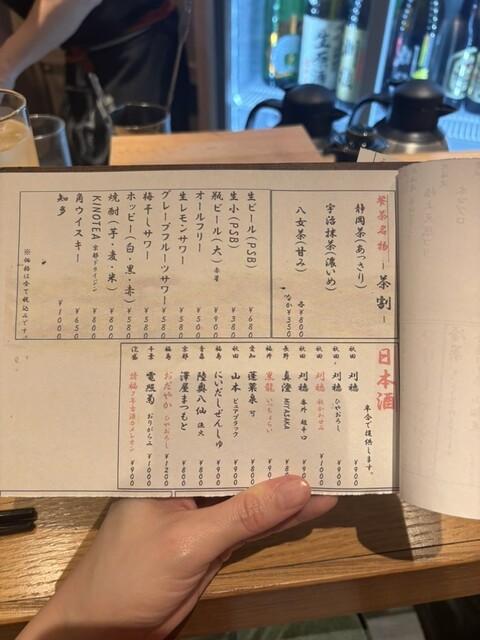 茶割
静岡茶(あっさり)
宇治抹茶(濃いめ)
八女茶(甘み)
各¥800
なか¥350
生ビール(PSB) ¥680
生小(PSB) ¥380
瓶ビール(大)赤星 ¥900
オールフリー ¥500
生レモンサワー ¥580
グレープフルーツサワー ¥580
梅干しサワー ¥580
ホッピー(白・黒・赤) ¥580
焼酎(芋・麦・米) ¥800
KINOTEA 京都ドライジン ¥800
角ウイスキー ¥650
知多 ¥1000
※価格は全て税込みです。
日本酒
半合で提供します。
秋田 刈穂 ¥900
秋田 刈穂 ひやおろし ¥900
秋田 刈穂 ¥1000
秋田 刈穂 番外 超辛口 ¥900
長野 真澄 MIYASAKA
福井 黒龍 いっちょらい
愛知 蓬莱泉 可 ¥800
秋田 山本 ピュアブラック ¥900
福島 にいだしぜんしゅ ¥900
青森 陸奥八仙 ¥800
京都 澤屋まつもと ¥800
福島 おだやか ひやおろし ¥1200
千葉 電照菊 おりがらみ ¥1000
¥900